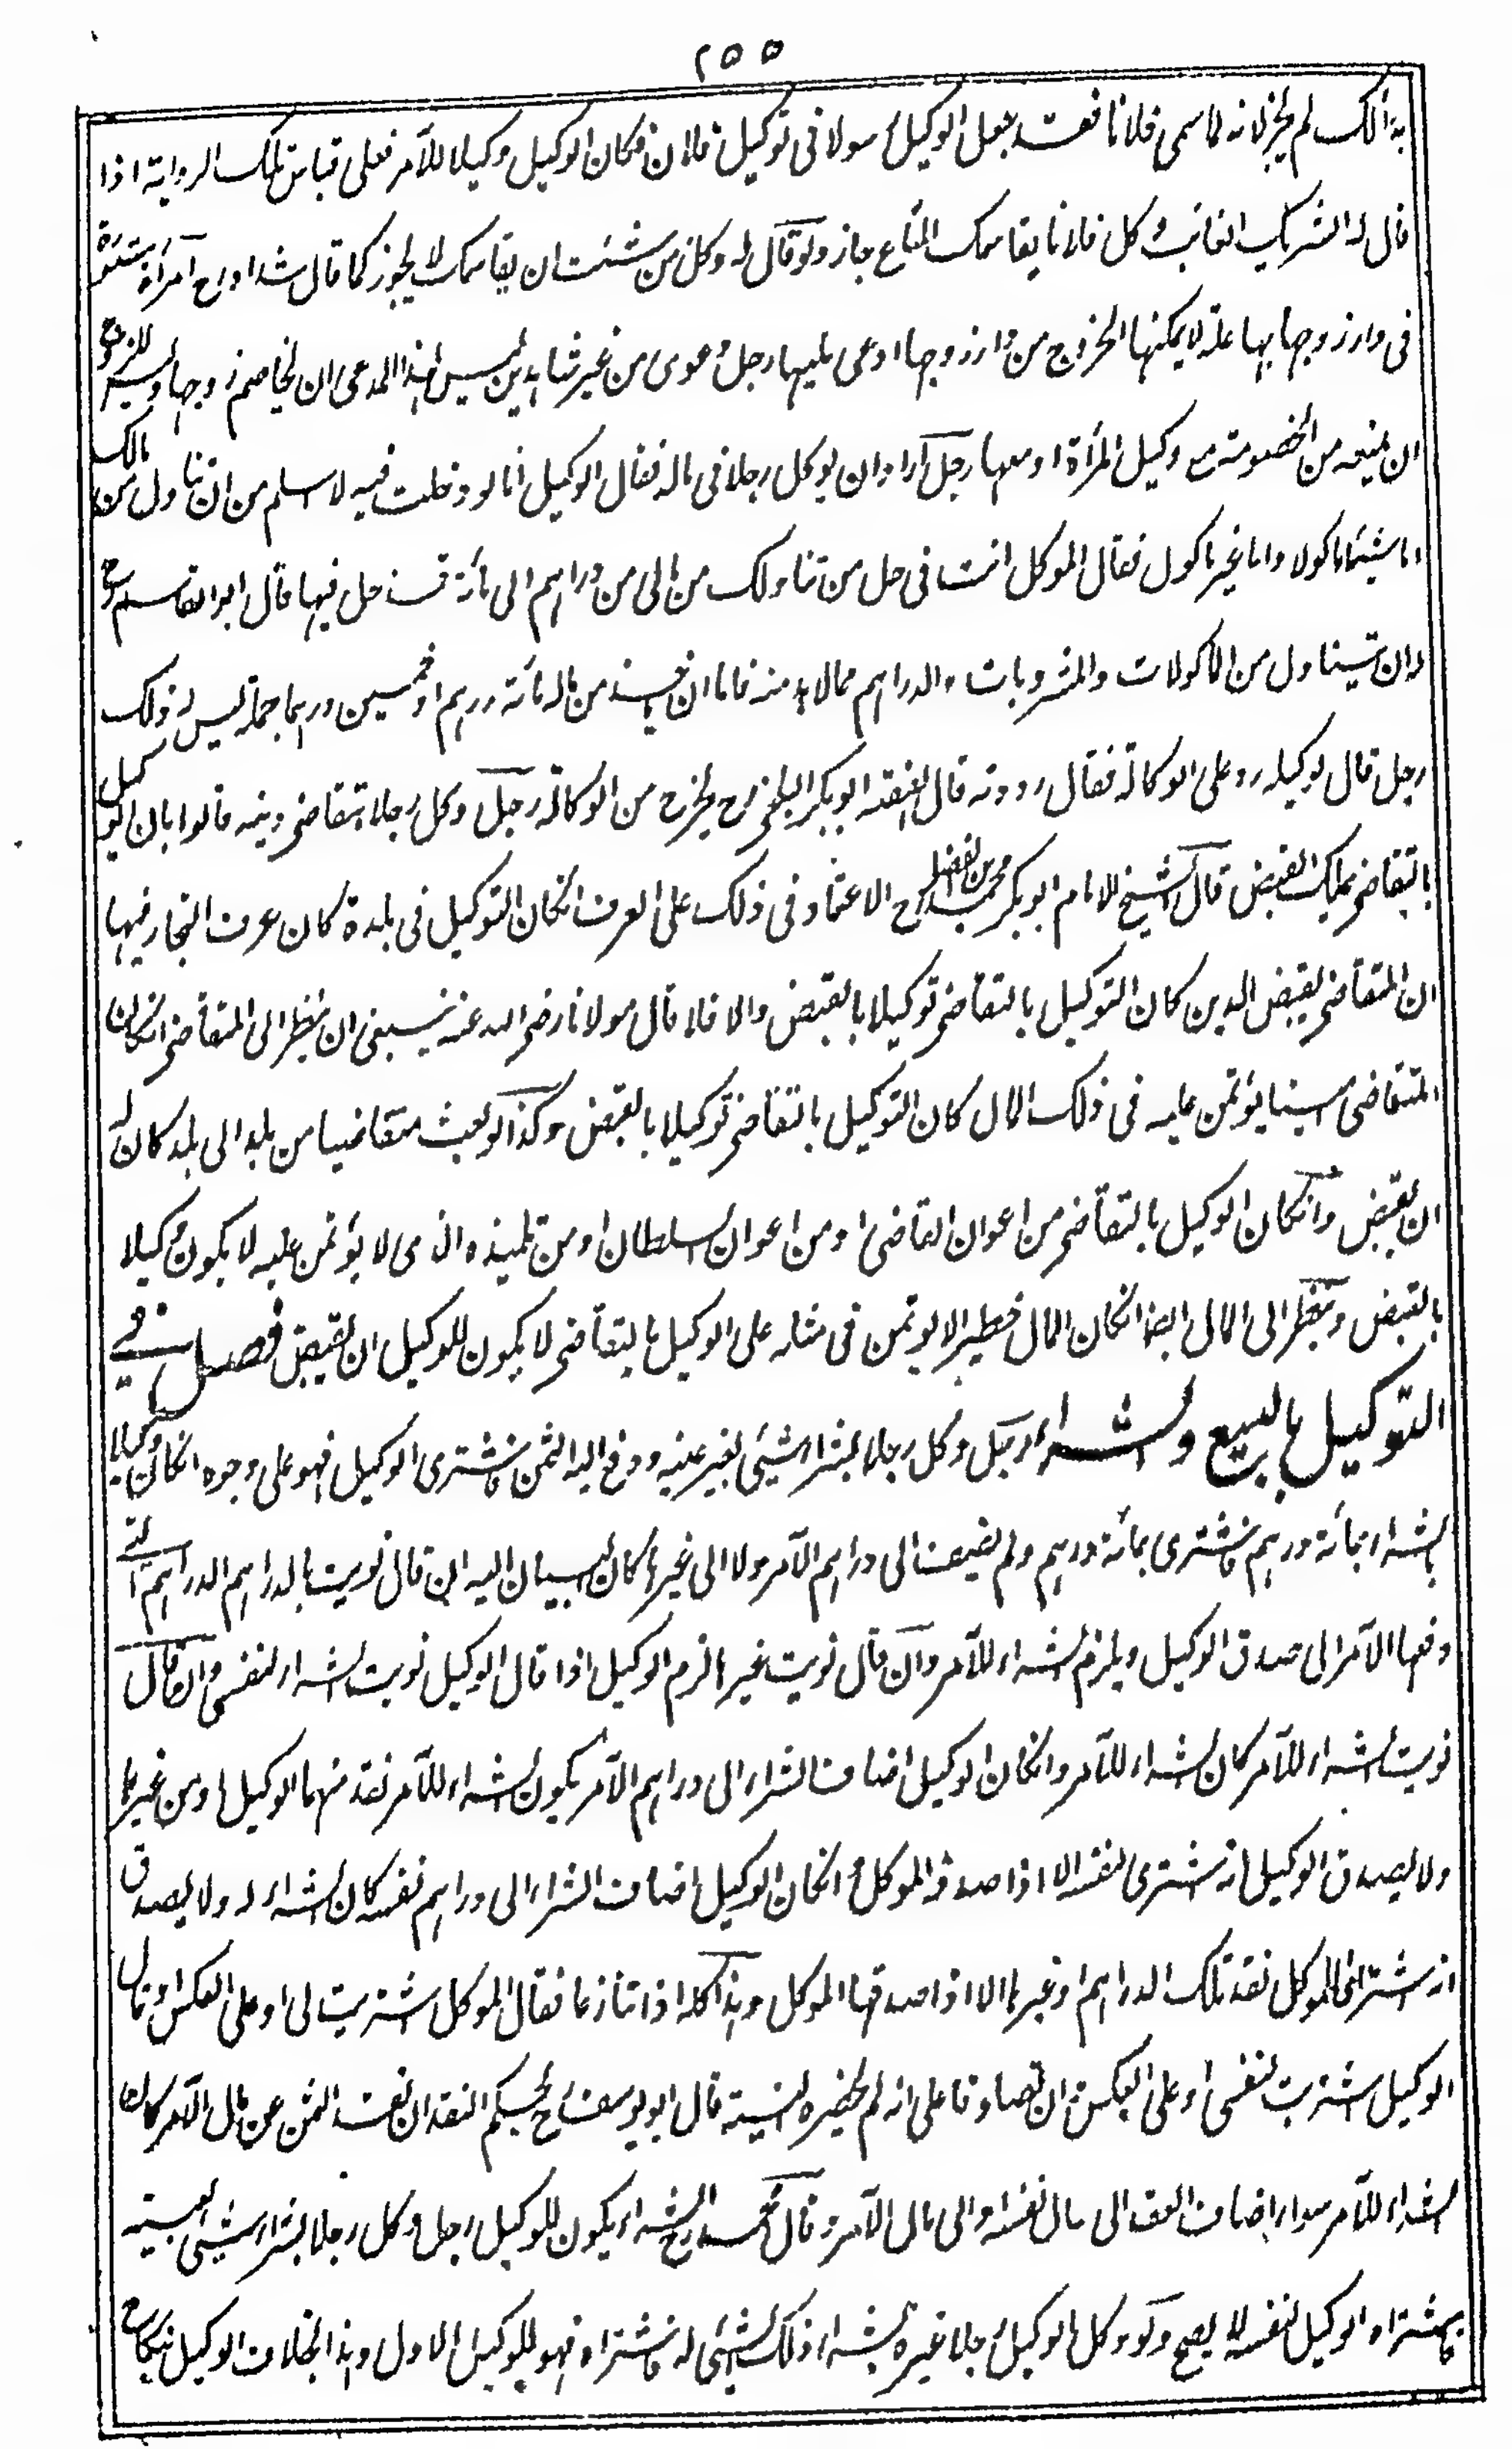 ٢٥٥
بذلك لم يجز لانه لما سمى فلانا فقد جعل الوكيل رسولا فى توكيل فلان فكان الوكيل وكيلا للآمر فعلى قياس تلك الرواية اذا
قال له الشريك الغائب وكل فلانا يقاسمك المتاع جاز ولو قال له وكل من شئت ان يقاسمك لا يجوز كما قال شداد رح امرأة مستترة
فى دار زوجها بها علة لا يمكنها الخروج من دار زوجها ادعى عليها رجل دعوى من غير شاهدين ليس لهذا المدعى ان يخاصم زوجها وليس للزوج
ان يمنعه من الخصومة مع وكيل المرأة او معها رجل اراد ان يوكل رجلا فى ماله فقال الوكيل انا لو دخلت فيه لا اسلم من ان اتناول من مالك
اما شيئا ماكولا واما غير ماكول فقال الموكل انت فى حل من تناولك من مالى من دراهم الى مائة قد حل فيها قال ابو القاسم رح
له ان يتناول من الماكولات والمشروبات والدراهم مما لا بد منه فاما ان ياخذ من ماله مائة درهم او خمسين درهما جملة ليس له ذلك
رجل قال لوكيله رد على الوكالة فقال رددته قال الفقيه ابو بكر البلخى رح يخرج من الوكالة رجل وكل رجلا بتقاضى دينه قالوا بان الوكيل
بالتقاضى يملك القبض قال الشيخ الامام ابو بكر محمد بن الفضل رح الاعتماد فى ذلك على العرف انكان التوكيل فى بلدة كان عرف التجار فيها
ان المتقاضى يقبض الدين كان التوكيل بالتقاضى توكيلا بالقبض والا فلا قال مولانا رضى الله عنه ينبغى ان ينظر الى المتقاضى انكان
المتقاضى امينا يؤتمن عليه فى ذلك المال كان التوكيل بالتقاضى توكيلا بالقبض وكذا لو بعث متقاضيا من بلد الى بلد كان له
ان يقبض وانكان الوكيل بالتقاضى من اعوان القاضى او من اعوان السلطان او من تلميذه الذى لا يؤتمن عليه لا يكون وكيلا
بالقبض وينظر الى المال ايضا انكان المال خطيرا لا يؤتمن فى مثله على الوكيل بالتقاضى لا يكون للوكيل ان يقبض فصل فى
التوكيل بالبيع والشراء رجل وكل رجلا بشراء شيئى بغير عينه ودفع اليه الثمن فاشترى الوكيل فهو على وجوه انكان وكيلا
بالشراء بمائة درهم فاشترى بمائة درهم ولم يضف الى دراهم الآمر ولا الى غيرها كان البيان اليه ان قال نويت بالدراهم الدراهم التى
دفعها الآمر الى صدق الوكيل ويلزم الشراء للآمر وان قال نويت غيرها لزم الوكيل اذا قال الوكيل نويت الشراء لنفسى وان قال
نويت الشراء للآمر كان الشراء للآمر وانكان الوكيل اضاف الشراء الى دراهم الآمر يكون الشراء للآمر نقد منها الوكيل او من غيرها
ولا يصدق الوكيل انه اشترى لنفسه الا اذا صدقه الموكل وانكان الوكيل اضاف الشراء الى دراهم نفسه كان الشراء له ولا يصدق
انه اشترى للموكل نقد تلك الدراهم او غيرها الا اذا صدقها الموكل وهذا كله اذا تنازعا فقال الموكل اشتريت لى او على العكس او قال
الوكيل اشتريت لنفسى او على العكس وان تصادقا على انه لم يحضره النية قال ابو يوسف رح يحكم النقد ان نقد الثمن عن مال الآمر كان
الشراء للآمر سواء اضاف العقد الى مال نفسه او الى مال الآمر وقال محمد رح الشراء يكون للوكيل رجل وكل رجلا بشراء شيئى بعينه
فاشتراه الوكيل لنفسه لا يصح ولو وكل الوكيل رجلا غيره بشراء ذلك الشيئى له فاشتراه فهو للوكيل الاول وهذا بخلاف الوكيل بنكاح